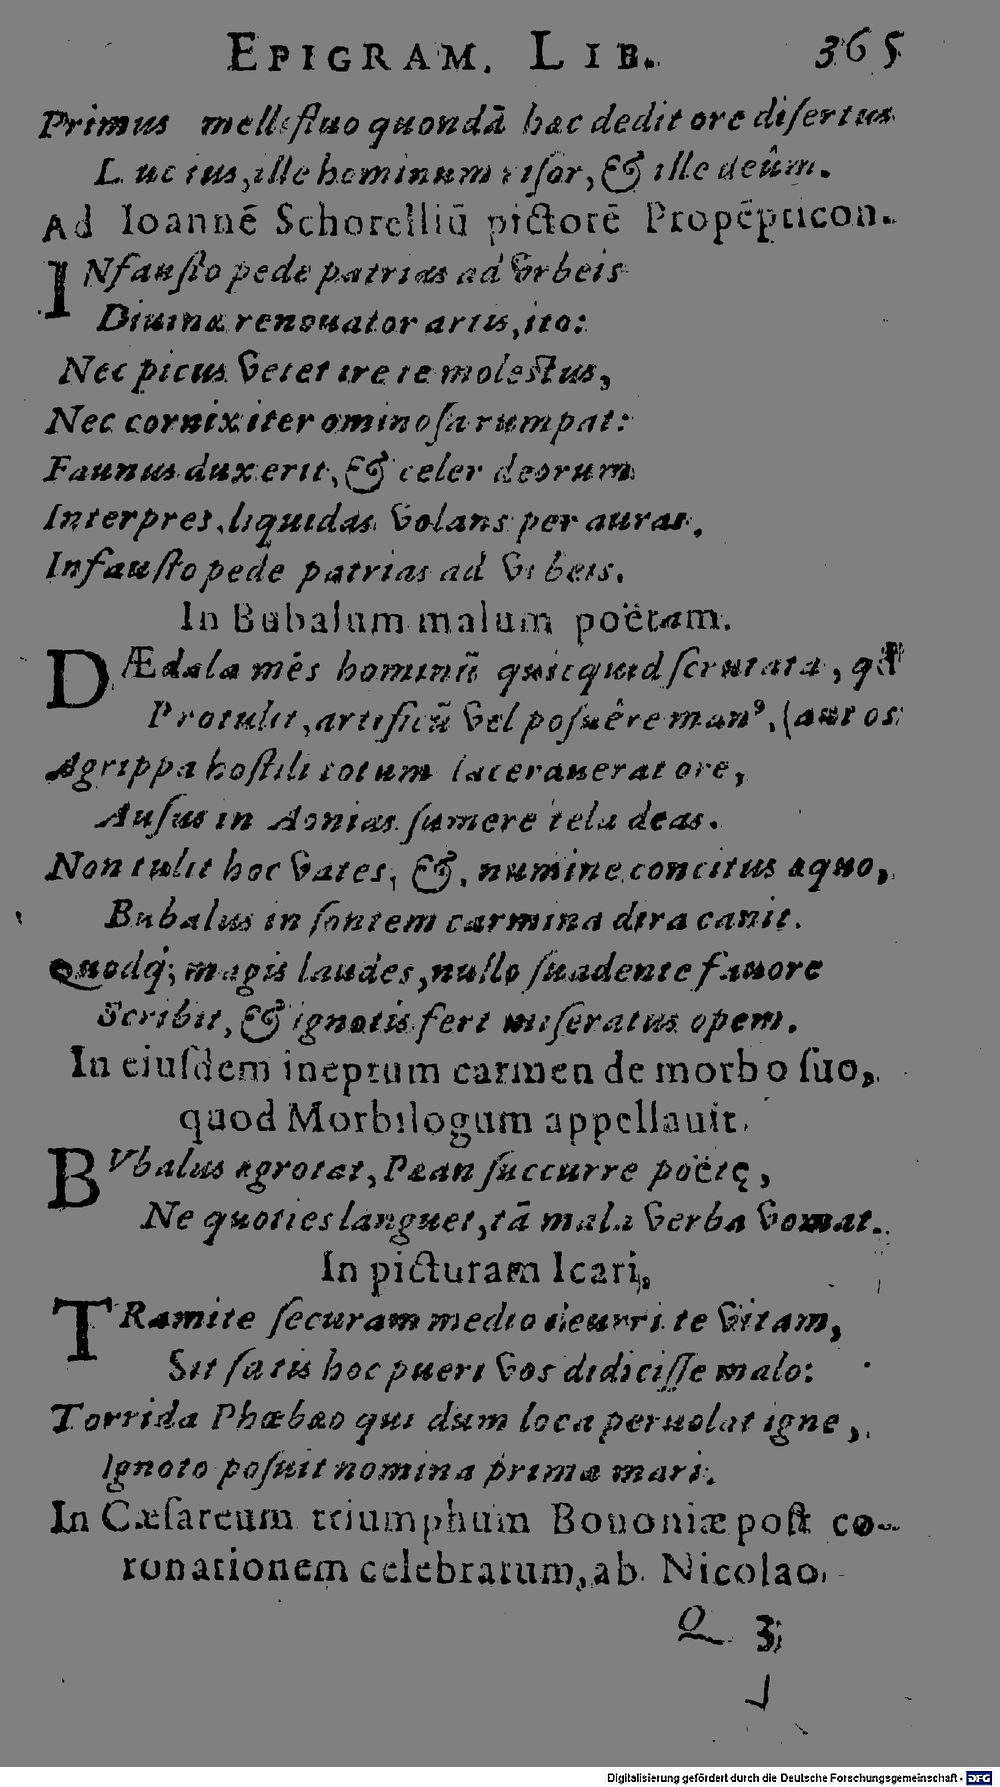 EPIGRAM. LIB. 365
Primus mellifluo quondā hac dedit ore disertus
Lucius, ille hominum risor, & ille deûm.
Ad Ioannē Schorelliū pictorē Propēpticon.
INfausto pede patrias ad vrbeis
Diuinæ renouator artis, ito:
Nec picus vetet ire te molestus,
Nec cornix iter ominosa rumpat:
Faunus dux erit, & celer deorum
Interpres, liquidas volans per auras.
Infausto pede patrias ad vrbeis.
In Bubalum malum poëtam.
DÆdala mēs hominū quicquid scrutata,
Protulit, artificū vel posuêre man⁹, (aut os
Agrippa hostili totum lacerauerat ore,
Ausus in Aonias sumere tela deas.
Non tulit hoc vates, &, numine concitus æquo,
Bubalus in sontem carmina dira canit.
Quodq; magis laudes, nullo suadente fauore
Scribit, & ignotis fert miseratus opem.
In eiusdem ineptum carmen de morbo suo,
quod Morbilogum appellauit.
BVbalus ægrotat, Pæan succurre poëtę,
Ne quoties languet, tā mala verba vomat.
In picturam Icari,
TRamite securam medio decurrite vitam,
Sit satis hoc pueri vos didicisse malo:
Torrida Phœbæo qui dum loca peruolat igne,
Ignoto posuit nomina prima mari.
In Cæsareum triumphum Bononiæ post co-
ronationem celebratum, ab Nicolao
Q 3
Digitalisierung gefördert durch die Deutsche Forschungsgemeinschaft - DFG